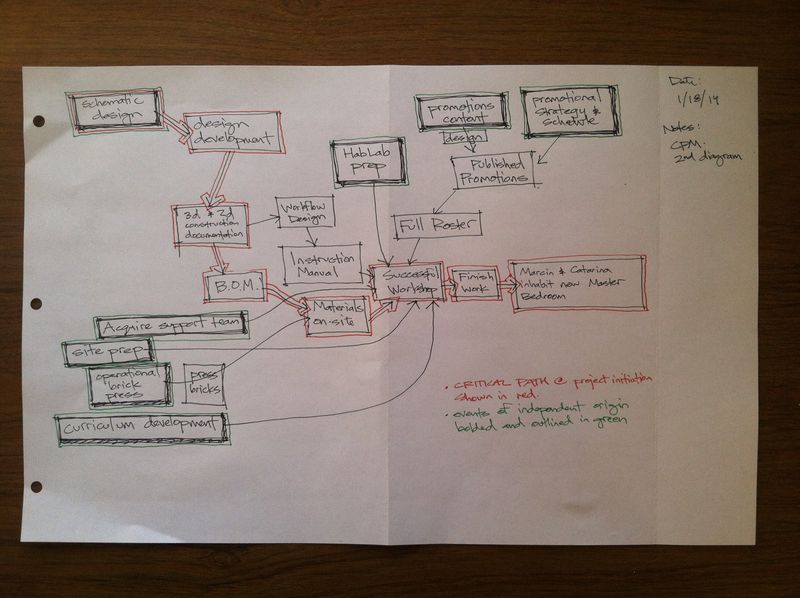 schematic
design
design
development
3d & 2d
construction
documentation
B.O.M.
Workflow
Design
Instruction
Manual
Materials
on-site
Acquire support team
site prep
operational
brick
press
press
bricks
curriculum development
HabLab
prep
promotions
content
design
promotional
strategy &
schedule
Published
Promotions
Full Roster
Successful
Workshop
Finish
Work
Marcin & Catarina
inhabit new Master
Bedroom
• CRITICAL PATH @ project initiation
shown in red.
• events of independent origin
bolded and outlined in green
Date:
1/18/14
Notes:
CPM
2nd diagram